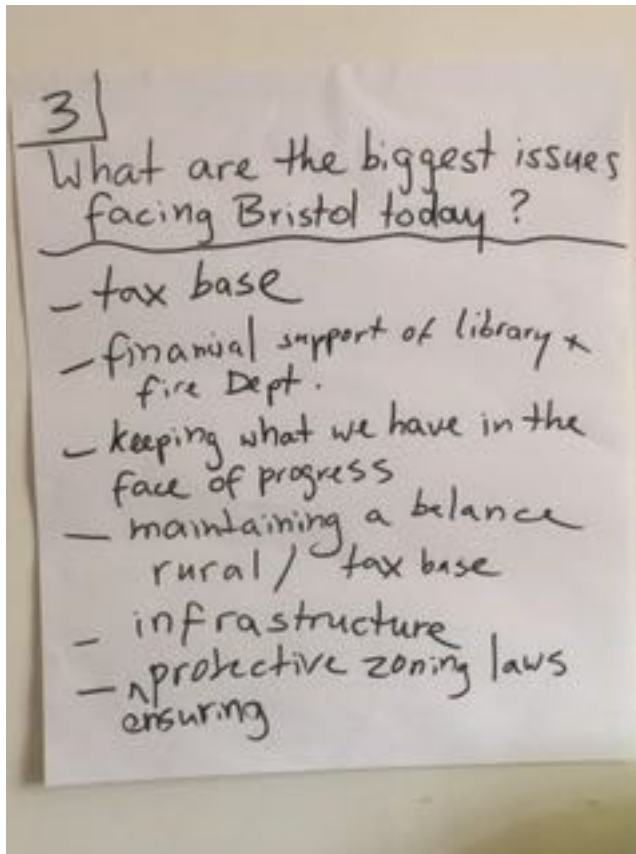 3
What are the biggest issues
facing Bristol today?
- tax base
- financial support of library +
fire Dept.
- keeping what we have in the
face of progress
- maintaining a balance
rural / tax base
- infrastructure
- ^protective zoning laws
ensuring